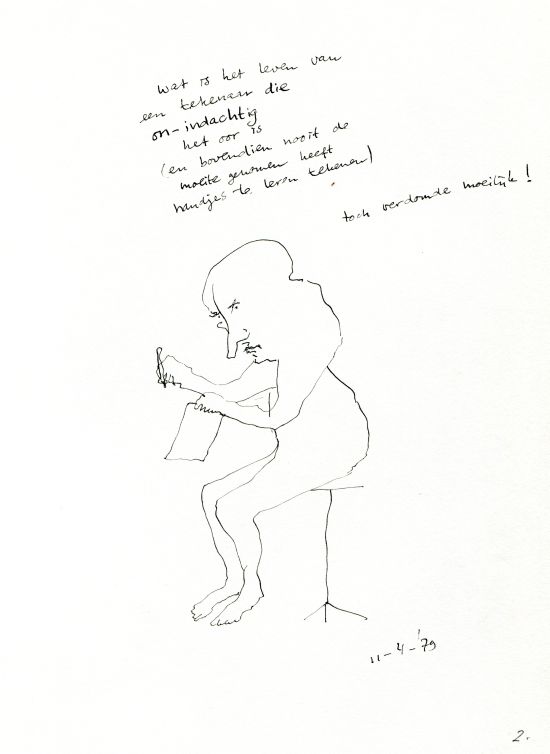 wat is het leven van
een tekenaar die
on-indachtig
het oor is
(en bovendien nooit de
moeite genomen heeft
handjes te leren tekenen)
toch verdomde moeilijk!
11-4-'79
2.